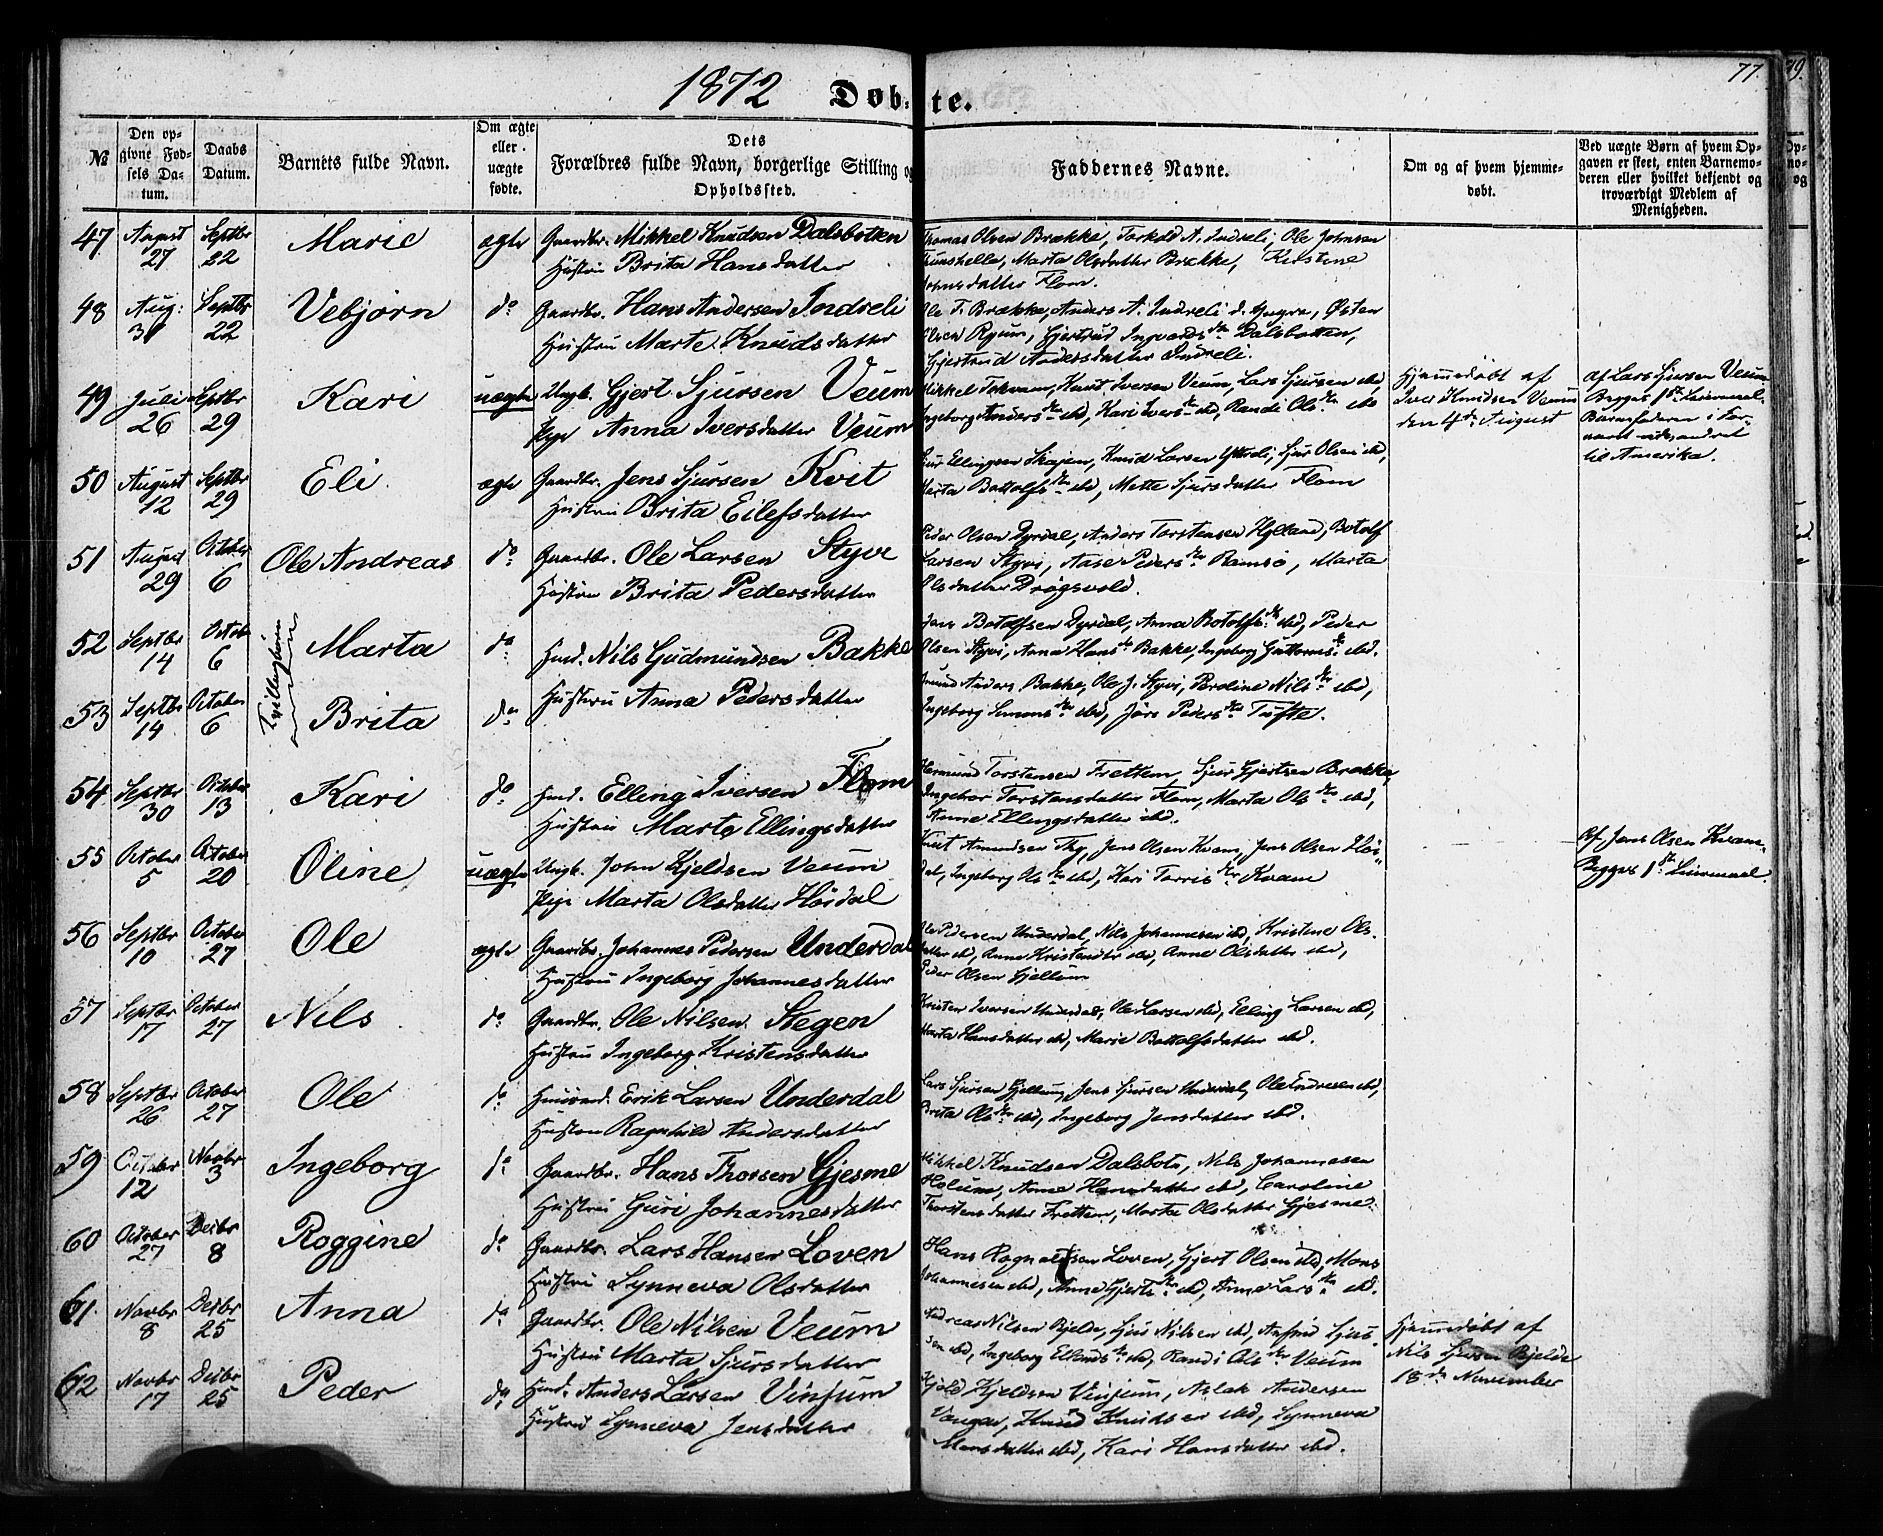 1872 Døbte. 77.
№
Den opgivne Fødsels Datum.
Daabs Datum.
Barnets fulde Navn.
Om ægte eller uægte fødte.
Dets Forældres fulde Navn, borgerlige Stilling og Opholdssted.
Faddernes Navne.
Om og af hvem hjemmedøbt.
Ved uægte Børn af hvem Opgaven er skeet, enten Barnemoderen eller hvilket bekjendt og troværdigt Medlem af Menigheden.
47 August 27 Septbr 22 Marie ægte Gaardbr. Mikkel Knudsen Dalsbotten
Hustru Brita Hansdatter
Thomas Olsen Brække, Torkild A. Indreli, Ole Johnsen
Marta Olsdatter Brække, Kirstine
Johnsdatter Flom.
48 Aug: 31 Septbr 22 Vebjørn do Gaardbr. Hans Andersen Indreli
Hustru Marte Knudsdatter
Ole T. Brække, Anders A. Indreli d. yngre, Østen
Olsen Ryum, Gjertrud Ingvards dtr Dalsbotten,
Gjertrud Andersdatter Indreli.
49 Juli 26 Septbr 29 Kari uægte Ungk. Gjert Sjursen Veum
Pige Anna Iversdatter Veum
Mikkel Tokvam, Knut Iversen Veum, Lars Sjursen ibd,
Ingeborg Anders dtr ibd, Kari Ivers dtr ibd, Randi Ols dtr ibd
Hjemmedøbt af
Iver Knudsen Veum
den 4de August
af Lars Sjursen Veum
Begges 1ste Leiermaal.
Barnefaderen i For-
aaret udvandret
til Amerika.
50 August 12 Septbr 29 Eli ægte Gaardbr. Jens Sjursen Kvit
Hustru Brita Eilefsdatter
Sjur Ellingsen Skajem, Knud Larsen Ytreli, Sjur Olsen ibd,
Marta Bottolfs dtr ibd, Mette Sjursdatter Flom
51 August 29 October 6 Ole Andreas do Gaardbr. Ole Larsen Styve
Hustru Brita Pedersdatter
Peder Olsen Dyrdal, Anders Torstensen Hylland, Botolf
Larsen Styvi, Aase Peders dtr Ramsø, Marta
Olsdatter Drøgsvold.
Tvillingbørn
52 Septbr 14 Octob 6 Marta do Husd. Nils Gudmundsen Bakke
Hustru Anna Pedersdatter
Jens Botolfsen Dyrdal, Anna Botolfs dtr ibd, Peder
Olsen Styvi, Anna Hans dtr Bakke, Ingeborg Guttorms dtr ibd.
53 Septbr 14 October 6 Brita do
Anders Bakke, Ole J. Styvi, Peroline Nils dtr ibd,
Ingeborg Simons dtr ibd, Jøri Peders dtr Tufte.
54 Septbr 30 October 13 Kari do Husd. Elling Iversen Flom
Hustru Marta Ellingsdatter
Hermund Torstensen Frettem, Sjur Gjertsen Brække,
Ingebor Torstensdatter Flom, Marta Ols dtr ibd,
Anna Ellingsdatter ibd.
55 October 5 October 20 Oline uægte Ungk. John Kjeldsen Veum
Pige Marta Olsdatter Høidal
Knut Amundsen Ty, Jens Olsen Kvam, Jens Olsen Høi-
dal, Ingeborg Ols dtr ibd, Kari Torris dtr Kvam
Af Jens Olsen Kvam.
Begges 1ste Leiermaal.
56 Septbr 10 October 27 Ole ægte Gaardbr. Johannes Pedersen Underdal
Hustru Ingeborg Johannesdatter
Ole Pedersen Underdal, Nils Johannesen ibd, Kristine Ols-
datter ibd, Anne Kristensdtr ibd, Anne Olsdatter ibd,
Peder Olsen Gjellum
57 Septbr 17 October 27 Nils do Gaardbr. Ole Nilsen Stegen
Hustru Ingeborg Kristensdatter
Kristen Iversen Underdal, Ole Larsen ibd, Elling Larsen ibd,
Marta Hansdatter ibd, Marie Bottolfsdatter ibd.
58 Septbr 26 October 27 Ole do Huusmd. Erik Larsen Underdal
Hustru Ragnhild Andersdatter
Lars Sjursen Gjellum, Jens Sjursen Underdal, Ole Endresen ibd,
Brita Ols dtr ibd, Ingeborg Jensdatter ibd.
59 October 12 Novbr 3 Ingeborg do Gaardbr. Hans Thorsen Gjesme
Hustru Guri Johannesdatter
Mikkel Knudsen Dalsbotn, Nils Johannesen
Holum, Anne Hansdatter ibd, Caroline
Thorstensdatter Frettem, Marta Olsdatter Gjesme.
60 October 27 Decbr 8 Roggine do Gaardbr. Lars Hansen Loven
Hustru Synneva Olsdatter
Hans Ragnaldsen Loven, Gjert Olsen ibd, Mons
Johannesen ibd, Anne Gjerts dtr ibd, Anne Lars dtr ibd.
61. Novbr 8 Decbr 25 Anna do Gaardbr. Ole Nilsen Veum
Hustru Marta Sjursdatter
Andreas Nilsen Bjelde, Sjur Nilsen ibd, Sjur-
sen ibd, Ingeborg Ellends dtr ibd, Randi Ols dtr Veum
Hjemmedøbt af
Nils Sjursen Bjelde
18de November
62 Novbr 17 Decbr 25 Peder do Husd. Anders Larsen Vinjum
Hustru Synneva Jensdatter
Kjeld Kjeldsen Vinjum, Aslak Andersen
Vangen, Knud Knudsen ibd, Synneva
Monsdatter ibd, Kari Hansdatter ibd.